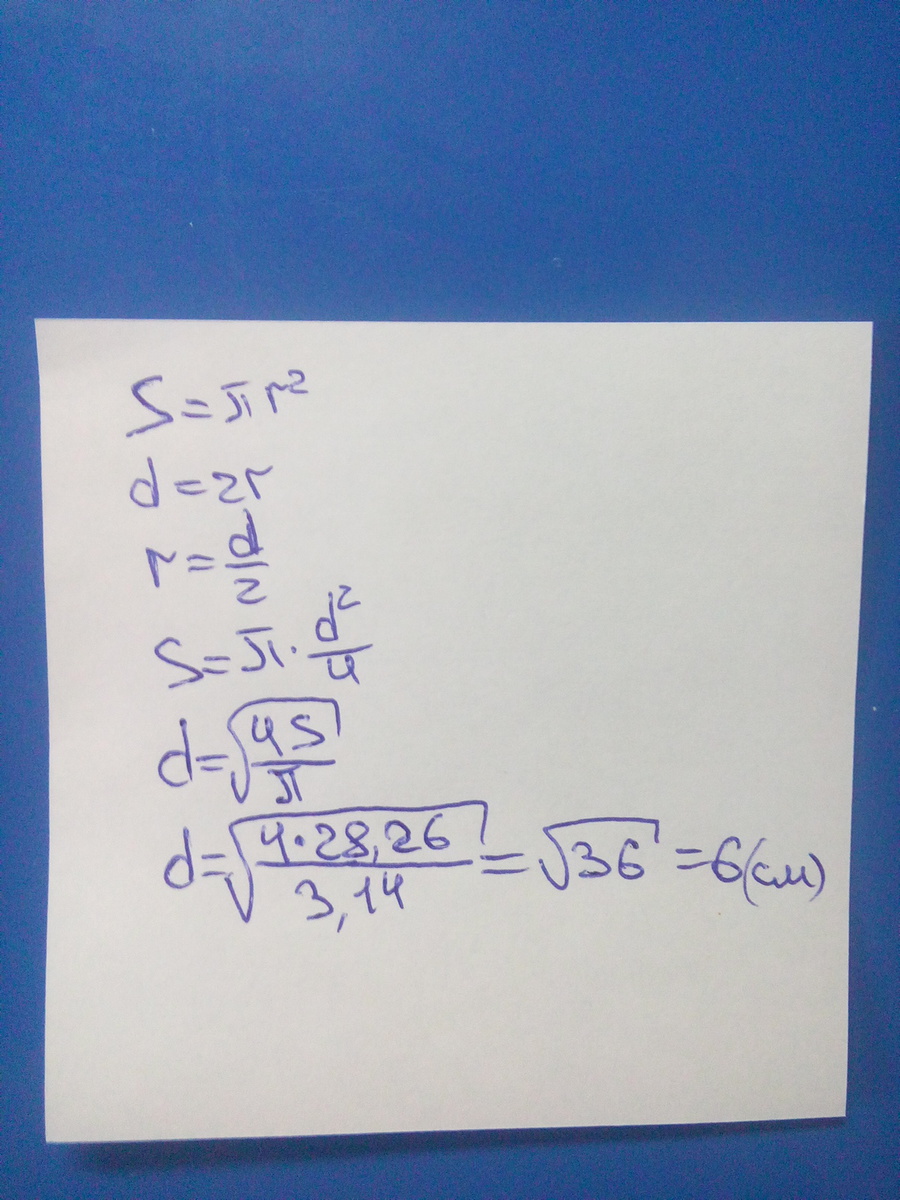 S=πr²
d=2r
r=d/2
S=π·d²/4
d=√(4S/π)
d=√(4·28,26/3,14)=√36=6(см)